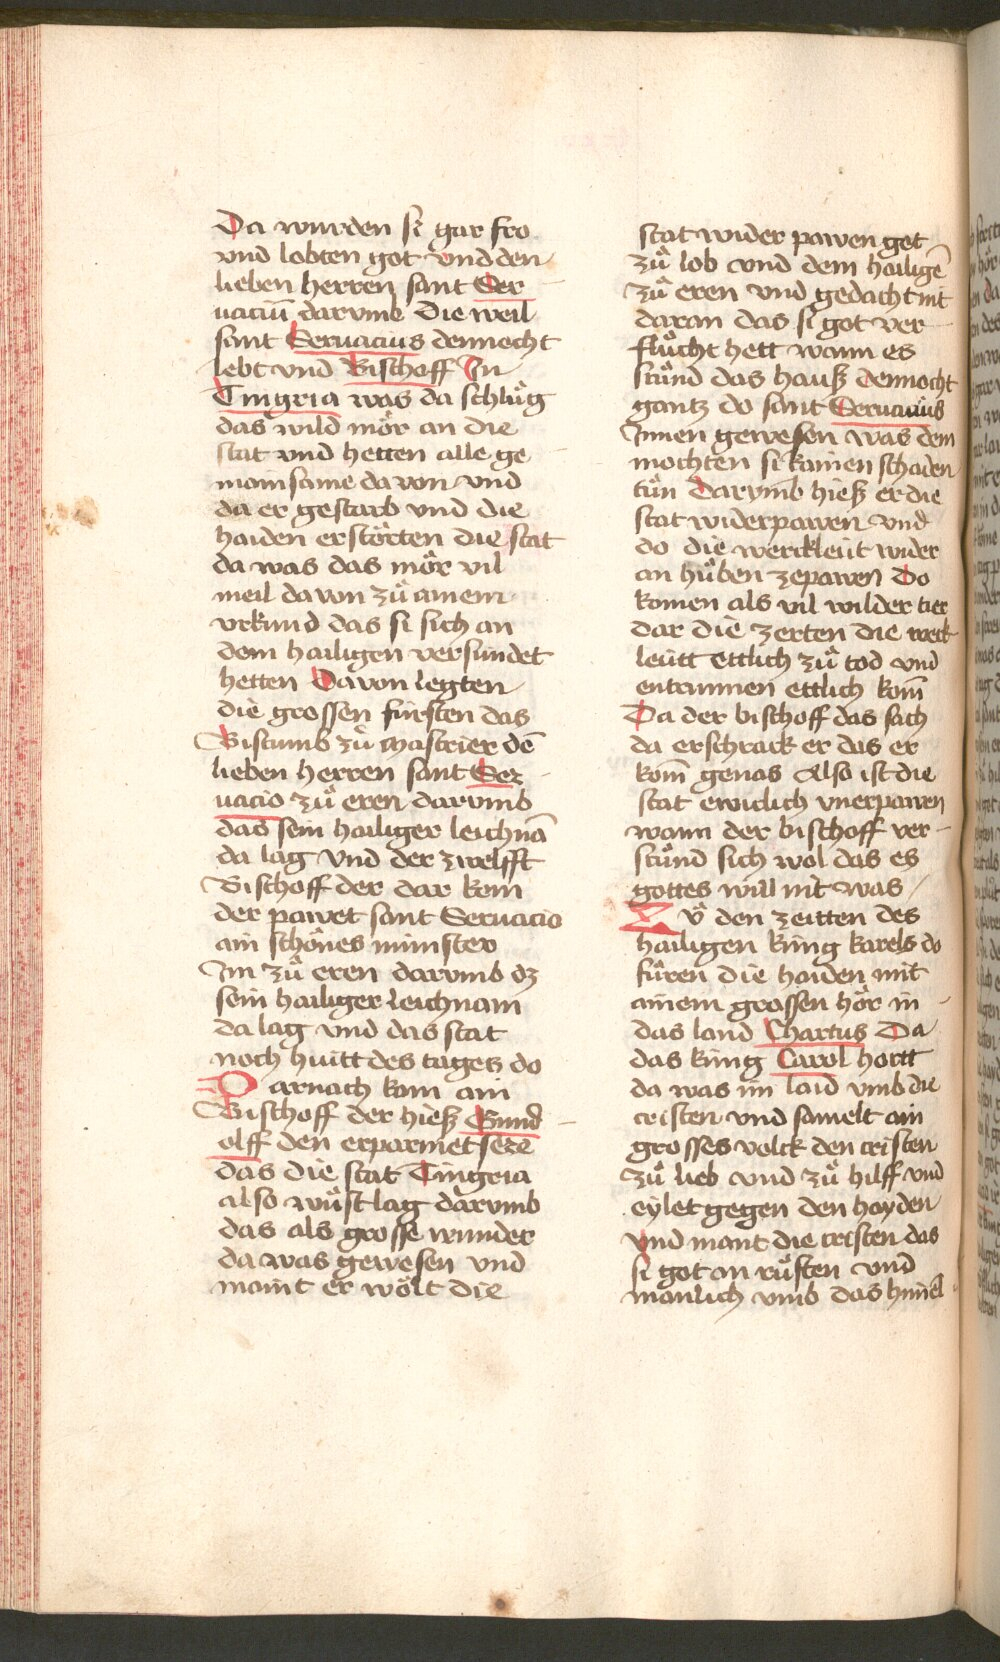 Da wurden si gar fro
vnd lobten got vnd den
lieben herren sant Ser
uaciu̅ darvmb Die weil
sant Seruacius dennocht
lebt vnd Bischoff In
Tingria was da schlůg
das wild mör an die
stat vnd hetten alle ge
mainsame da von vnd
da er gestarb vnd die
haiden erstörten die stat
da was das mör vil
meil da von zů ainem
vrkund das si sich an
dem hailigen versundet
hetten Da von legten
die grossen fürsten das
Bistumb zů mastrier de̅
lieben herren sant Ser
uacio zů eren darvmb
das sein hailiger leichna̅
da lag vnd der zwelfft
Bischoff der dar kom
der pawet sant Seruacio
ain schönes münster
Im zů eren darvmb dz
sein hailiger leichnam
da lag vnd das stat
noch huitt des tages do
Darnach kom ain
Bischoff der hieß Gund
olff den erparmet seze
das die stat Tingria
also wůst lag darvmb
das als grosse wunder
da was gewesen vnd
maint er wölt die
stat wider pawen got
zů lob vnd dem hailige̅
zů eren vnd gedacht nit
daran das si got ver
flůcht hett wann es
stůnd das hauß dennocht
gantz do sant Seruacius
Innen gewesen was dem
mochten si kainen schaden
tůn Darvmb hieß er die
stat wider pawen vnd
do die werckleut wider
an hůben ze pawen Do
komen als vil wilder tier
dar die zerten die werk
leutt ettlich zů tod vnd
entrunnen ettlich kom̅
Da der bischoff das sach
da erschrack er das er
kom̅ genas Also ist die
stat ewiclich vnerpawen
wann der bischoff ver
stůnd sich wol das es
gottes will nit was
Zů den zeitten des
hailigen küng karels do
fůren die haiden mit
ainem grossen hör in
das land Chartus Da
das küng Carol hortt
da was im laid vmb die
cristen vnd samelt ain
grosses volck den cristen
zů lieb vnd zů hilff vnd
eylet gegen den hayden
vnd mant die cristen das
si got an růften vnd
manlich vmb das himel